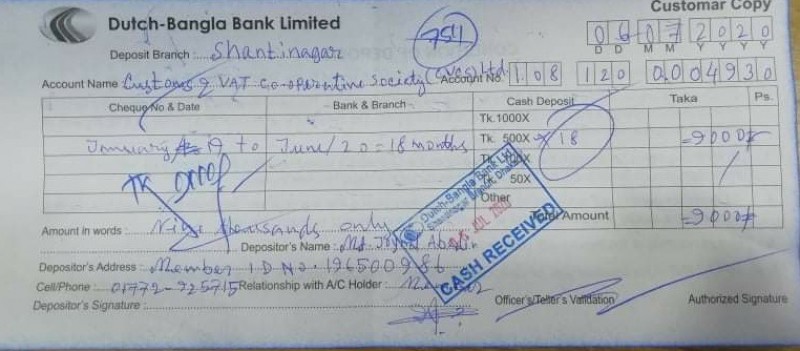 Customar Copy
Dutch-Bangla Bank Limited
754
06 07 2020
D D M M Y Y Y Y
Deposit Branch : Shantinagar
Account Name Customs & VAT Co-operative Society (CVCS) Ltd. Account No. 108 120 0004930
Cheque No & Date Bank & Branch Cash Deposit Taka Ps.
Tk. 1000X
January 19 to June/20 = 18 months Tk. 500X 18 =9000/
Tk 9000/ Tk. 100X
Tk. 50X
Other
Total Amount =9000/
Amount in words : Nine thousands only
Depositor's Name : Md. Joynal Abedin
Depositor's Address : Member ID No. 196500986
Cell/Phone : 01772-925715 Relationship with A/C Holder :
Depositor's Signature :
Officer's/Teller's Validation Authorized Signature
Dutch-Bangla Bank Ltd.
JUL 2020
CASH RECEIVED